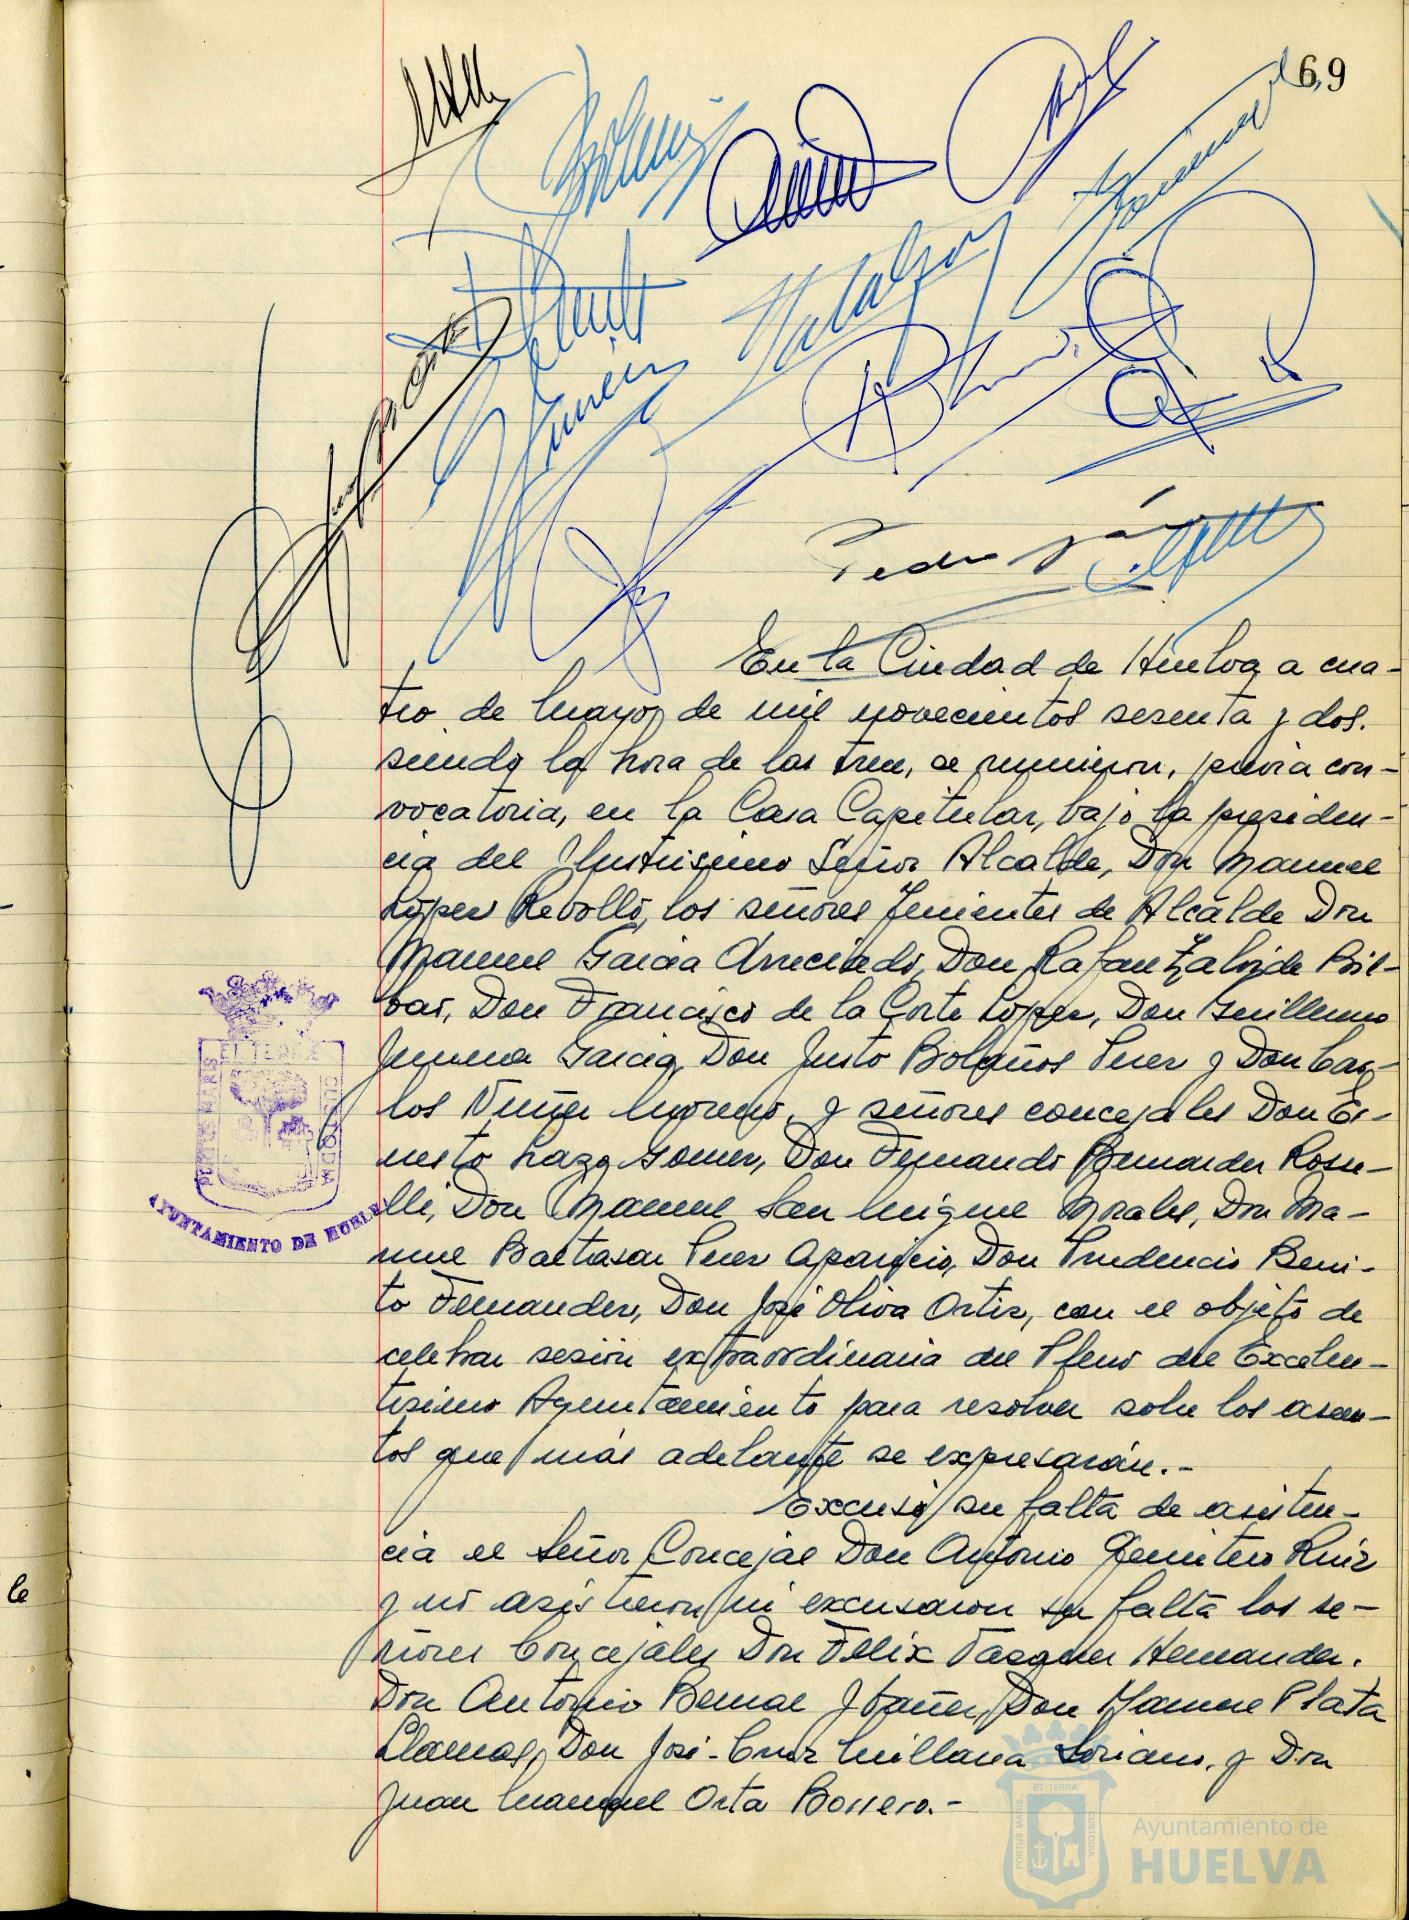 69
Pedro
En la Ciudad de Huelva a cua-
tro de Mayo, de mil novecientos sesenta y dos.
siendo la hora de las trece, se reunieron, previa con-
vocatoria, en la Casa Capitular, bajo la presiden-
cia del Ilustrisimo Señor Alcalde, Don Manuel
López Rebollo, los señores Tenientes de Alcalde Don
Manuel Garcia Arreciado, Don Rafael Zalvide Bil-
bao, Don Francisco de la Corte López, Don Guillermo
Jimenez Garcia, Don Justo Bolaños Perez y Don Car-
los Núñez Moreno, y señores concejales Don Er-
nesto Lazo Gomez, Don Fernando Bernardez Rose-
lli, Don Manuel San Miguel Morales, Don Ma-
nuel Baltasar Perez Aparicio, Don Prudencio Beni-
to Fernandez, Don José Oliva Ortiz, con el objeto de
celebrar sesión extraordinaria del Pleno del Excelen-
tisimo Ayuntamiento para resolver sobre los asun-
tos que más adelante se expresarán.-
Excusó su falta de asisten-
cia el Señor Concejal Don Antonio Ruiz
y no asistieron ni excusaron su falta los se-
ñores Concejales Don Félix Vazquez Hernandez.
Don Antonio Bernal Ibañez, Don Manuel Plata
Llamas, Don José-Cruz Millana Soriano, y Don
Juan Manuel Orta Borrero.-
PORTUS MARIS
ET TERRAE
CUSTODIA
AYUNTAMIENTO DE HUELVA
le
PORTUS MARIS
ET TERRA
CUSTODIA
Ayuntamiento de
HUELVA